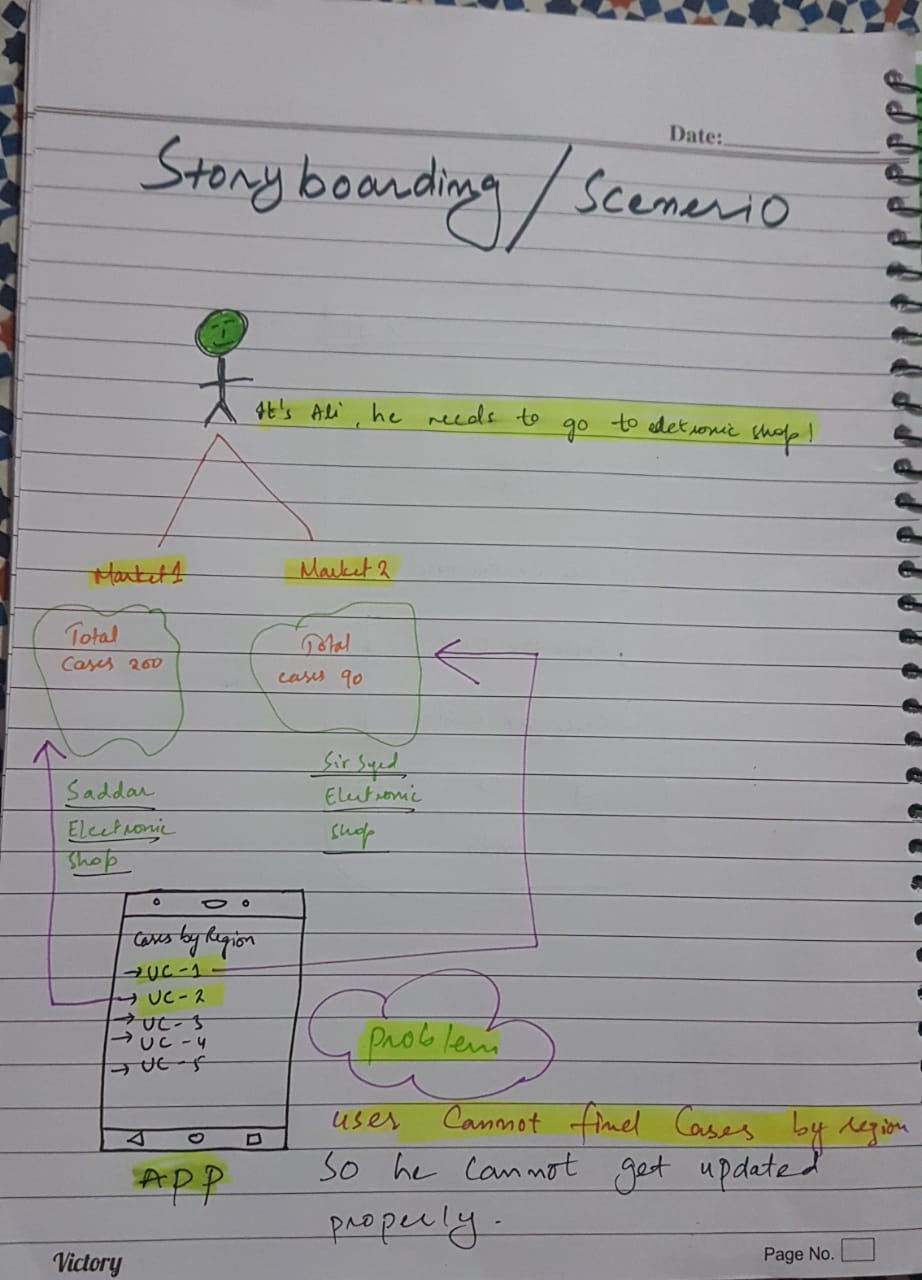 Date:
Storyboarding / Scenerio
It's Ali, he needs to go to eletronic shop!
Market 1
Market 2
Total
Cases 200
Total
cases 90
Saddar
Electronic
Shop
Sir Syed
Electronic
shop
Cases by Region
→ UC-1
→ UC-2
→ UC-3
→ UC-4
→ UC-5
APP
Problem
user Cannot find Cases by region
So he cannot get updated
properly.
Victory
Page No.